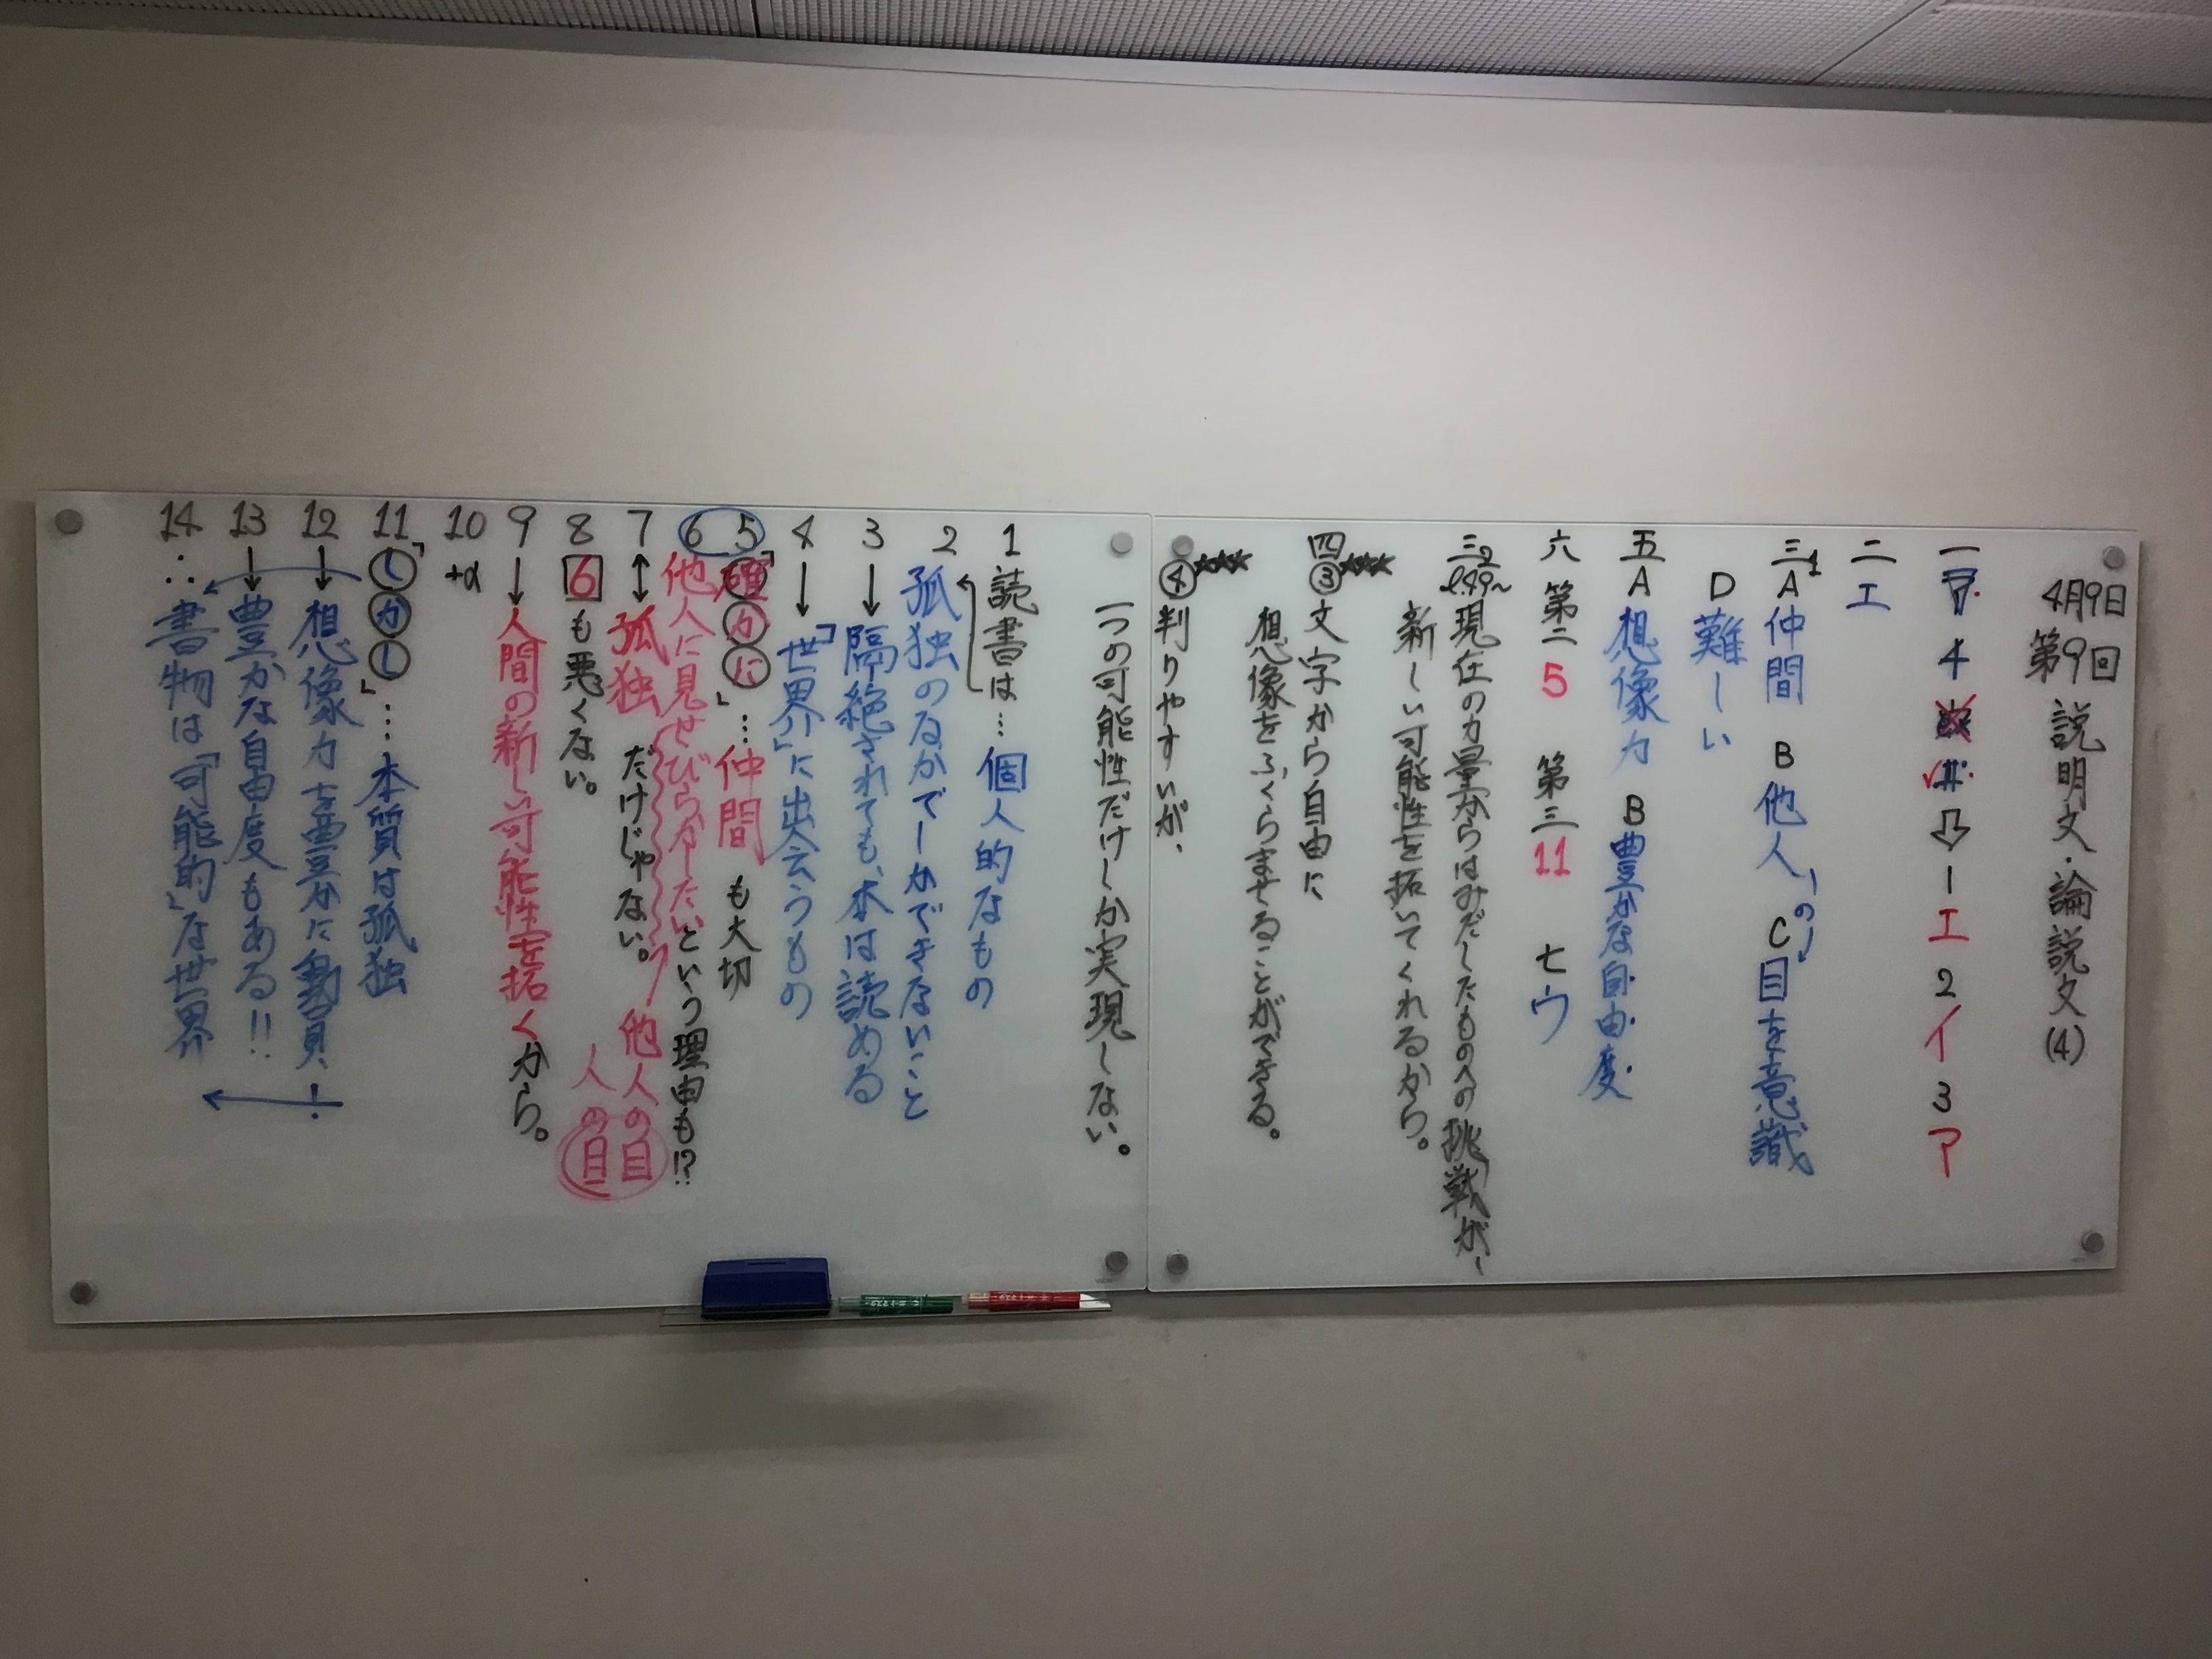 4月9日
第9回 説明文・論説文(4)
一 ア. 4 ⇩ 1 エ 2 イ 3 ア
二 エ
三1 A 仲間 B 他人「の」 C 目を意識
D 難しい
五 A 想像力 B 豊かな自由度
六 第二 5 第三 11 七 ウ
三2 l.49~ 現在の力量からはみだしたものへの挑戦が、
新しい可能性を拓いてくれるから。
四③★★★ 文字から自由に
想像をふくらませることができる。
④★★★ 判りやすいが、
一つの可能性だけしか実現しない。
1 読書は… 個人的なもの
2 孤独のなかでしかできないこと
3 ↓ 隔絶されても、本は読める
4 ↓ 「世界」に出会うもの
5 「確かに」… 仲間も大切
6 他人に見せびらかしたいという理由も!?
7 ↕ 孤独 だけじゃない。 他人の目
8 6 も悪くない。 人の目
9 ↓ 人間の新しい可能性を拓くから。
10 +α
11 「しかし」… 本質は孤独
12 ↓ 想像力を豊かに動員!
13 ↓ 豊かな自由度もある!!
14 ∴ 書物は「可能的」な世界